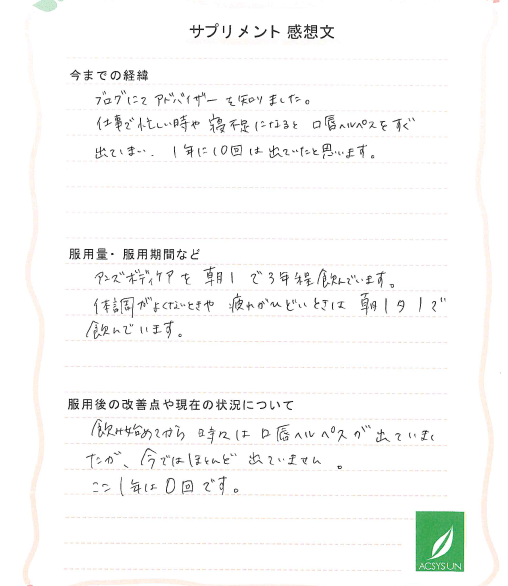 サプリメント 感想文
今までの経緯
ブログにて アドバイザー を知りました。
仕事で忙しい時や 寝不足になると 口唇ヘルペスをすぐ
出てしまい、1年に10回は出ていたと思います。
服用量・服用期間など
アンズボディケア を 朝1 で3年程飲んでいます。
体調がよくないときや 疲れがひどいときは 朝1夕1で
飲んでいます。
服用後の改善点や現在の状況について
飲み始めてから 時々は口唇ヘルペスが 出ていまし
たが、今ではほとんど 出ていません。
ここ1年は0回です。
ACSYSUN